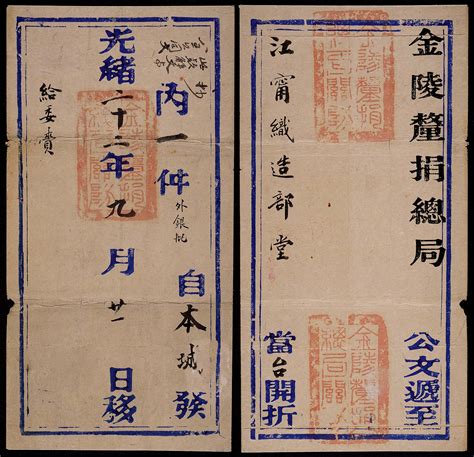 金陵釐捐總局公文遞至
江甯織造部堂當台開折
内一件外銀批自本城發
光緒二十二年九月廿一日移
給委賫